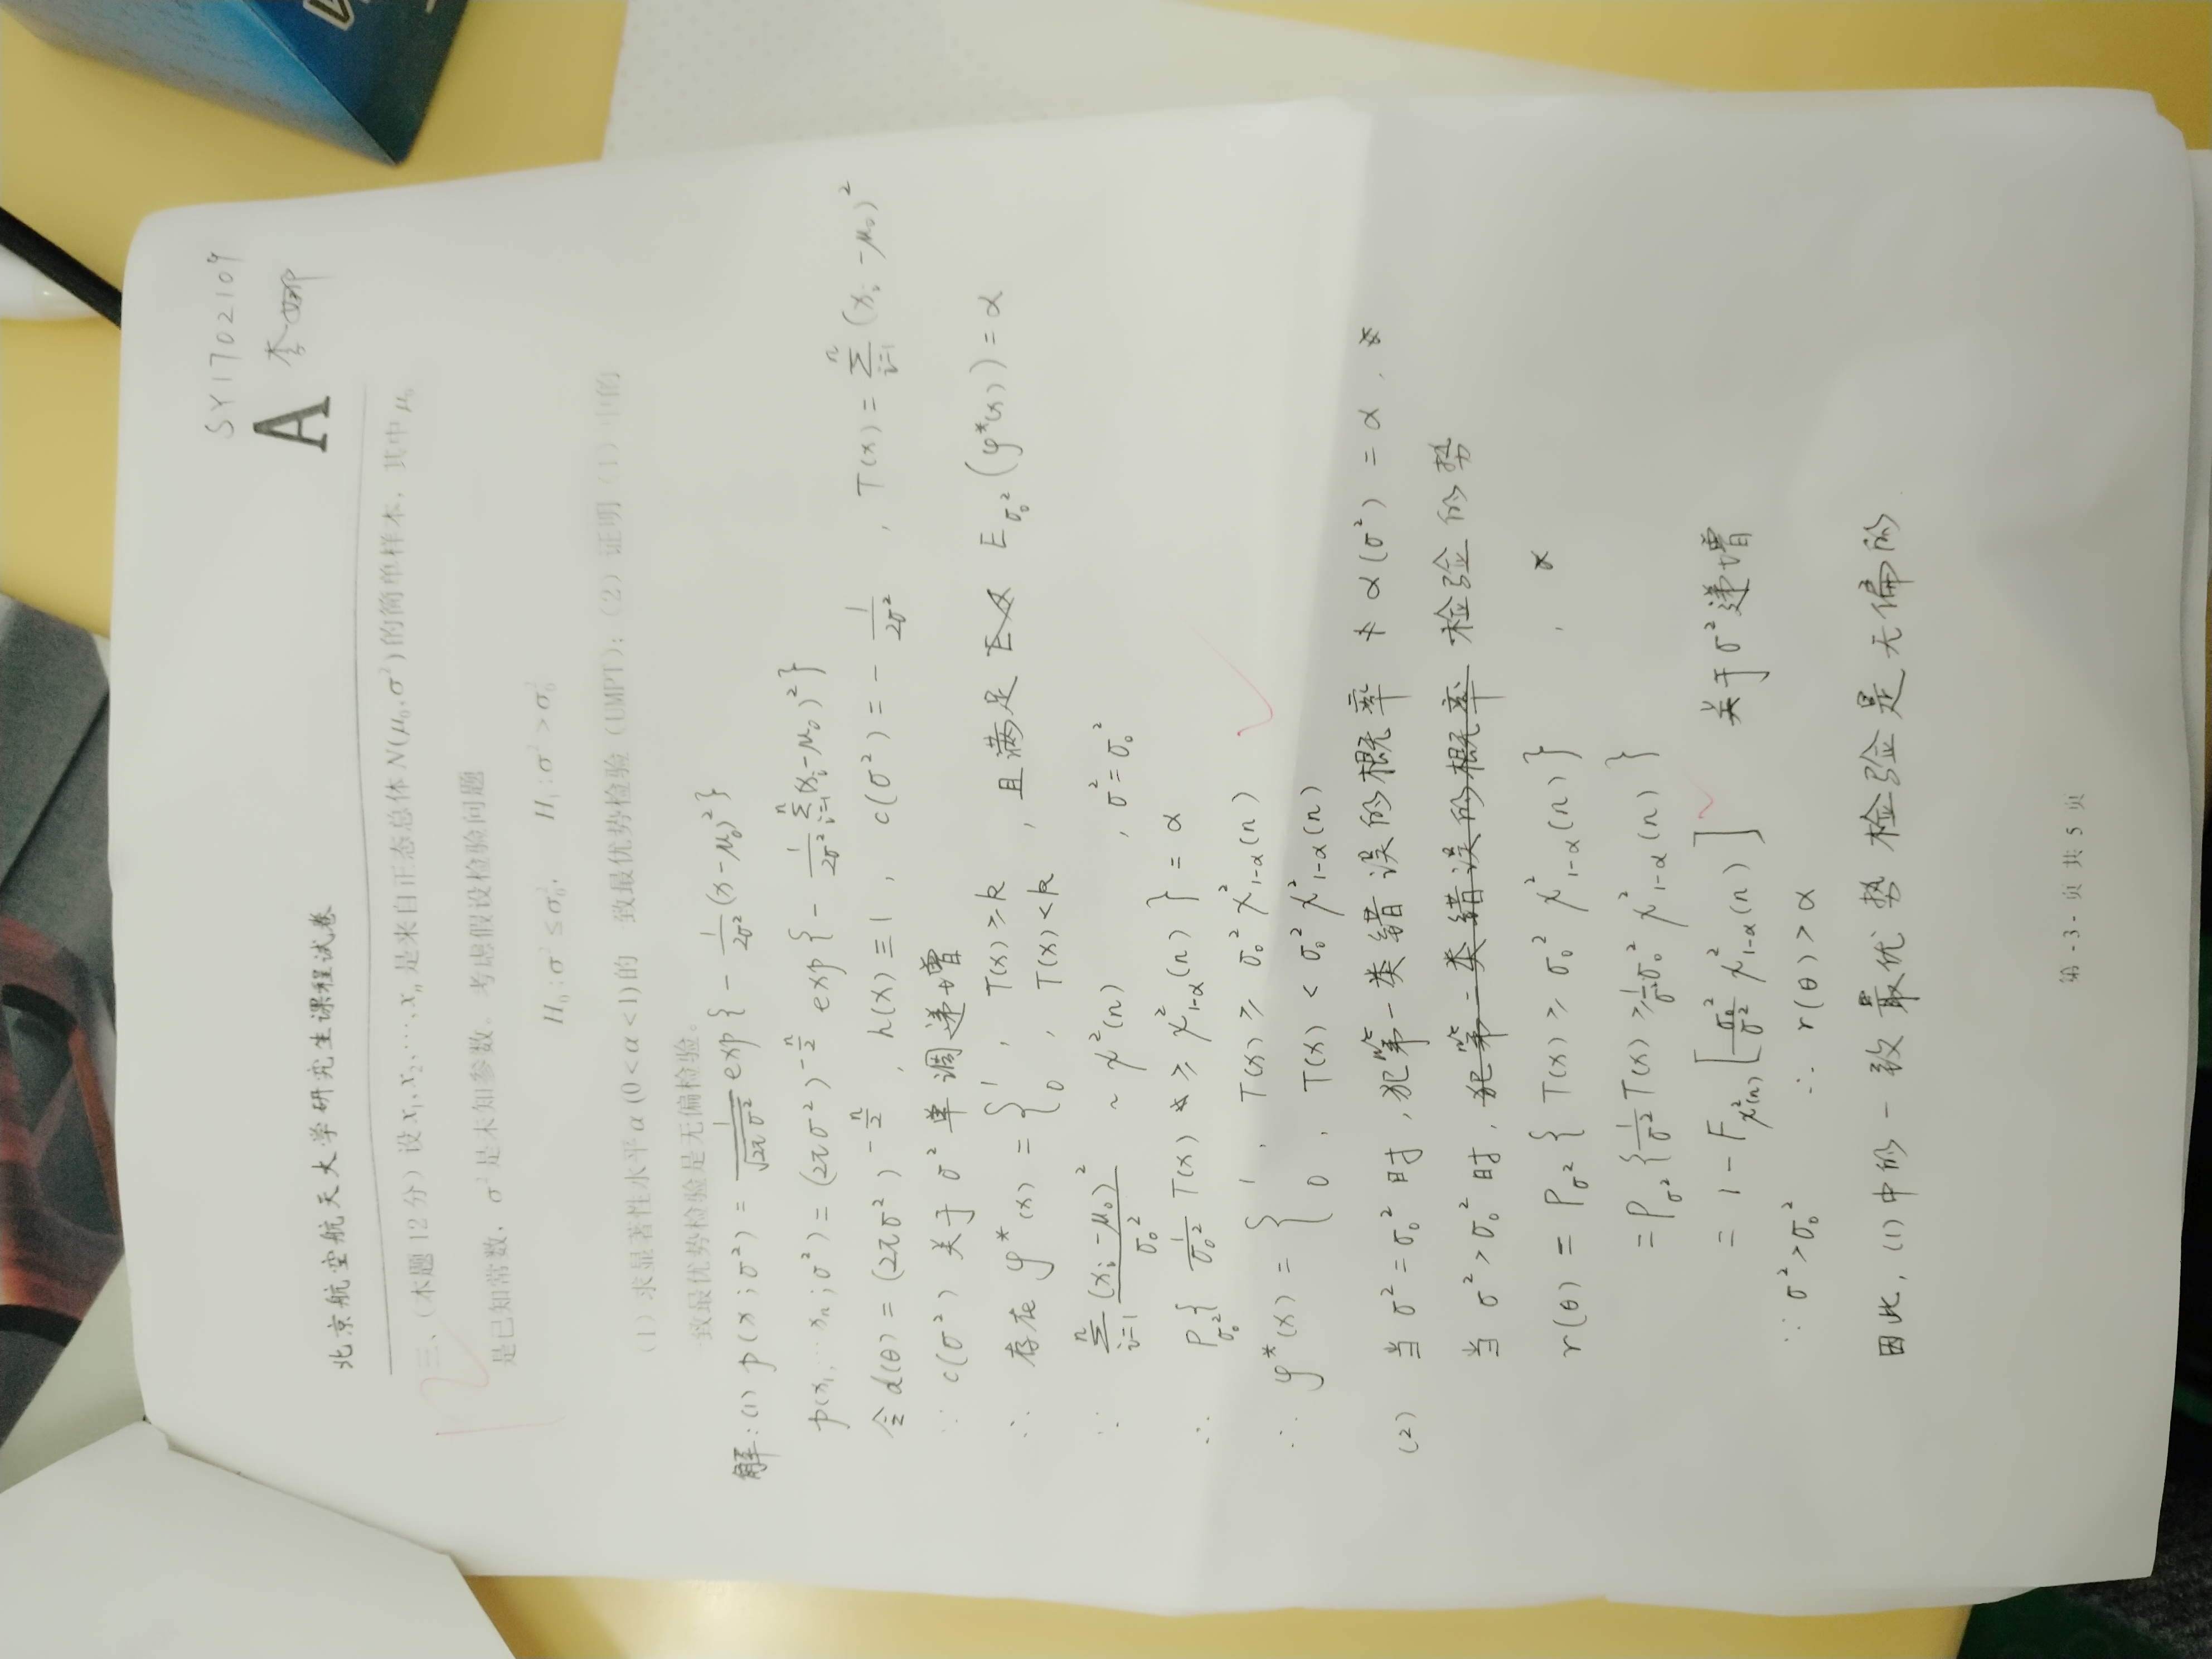 SY1702109
A 李娜
北京航空航天大学研究生课程试卷
12
三、（本题12分）设 x₁,x₂,⋯,xₙ 是来自正态总体 N(μ₀,σ²) 的简单样本，其中 μ₀
是已知常数，σ² 是未知参数。考虑假设检验问题
H₀:σ²≤σ₀², H₁:σ²>σ₀²
（1）求显著性水平 α (0<α<1) 的一致最优势检验（UMPT）；（2）证明（1）中的
一致最优势检验是无偏检验。
解：(1) p(x;σ²) = 1/√(2πσ²) exp{ - 1/(2σ²) (x-μ₀)² }
p(x₁,⋯xₙ;σ²) = (2πσ²)^(-n/2) exp{ - 1/(2σ²) Σᵢ₌₁ⁿ (xᵢ-μ₀)² }
令 d(θ) = (2πσ²)^(-n/2) , h(x) ≡ 1 , c(σ²) = - 1/(2σ²) , T(x) = Σᵢ₌₁ⁿ (xᵢ-μ₀)²
∵ c(σ²) 关于 σ² 单调递增
∴ 存在 φ*(x) = { 1 , T(x) ≥ k
0 , T(x) < k , 且满足 E_σ₀²(φ*(x)) = α
∵ Σᵢ₌₁ⁿ (xᵢ-μ₀)²/σ₀² ~ χ²(n) , σ²=σ₀²
∴ P_σ₀²{ 1/σ₀² T(x) ≥ χ²₁₋α(n) } = α
∴ φ*(x) = { 1 , T(x) ≥ σ₀² χ²₁₋α(n)
0 , T(x) < σ₀² χ²₁₋α(n)
(2) 当 σ²=σ₀² 时，犯第一类错误的概率 α(σ²) = α .
当 σ²>σ₀² 时，犯第二类错误的概率 检验的势
r(θ) = P_σ²{ T(x) ≥ σ₀² χ²₁₋α(n) } ,
= P_σ²{ 1/σ² T(x) ≥ 1/σ² σ₀² χ²₁₋α(n) }
= 1 - F_χ²(n) [ σ₀²/σ² χ²₁₋α(n) ] 关于 σ² 递增
∵ σ²>σ₀² ∴ r(θ) > α
因此, (1)中的一致最优势检验是无偏的
第 -3- 页 共 5 页